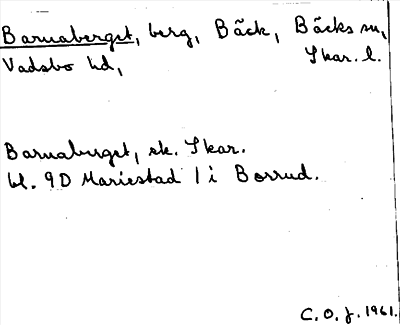 Barnaberget, berg, Bäck, Bäcks sn,
Vadsbo hd, Skar. l.
Barnaberget, sk. Skar.
bl. 9D Mariestad 1 i Borrud.
C. O. J. 1961.